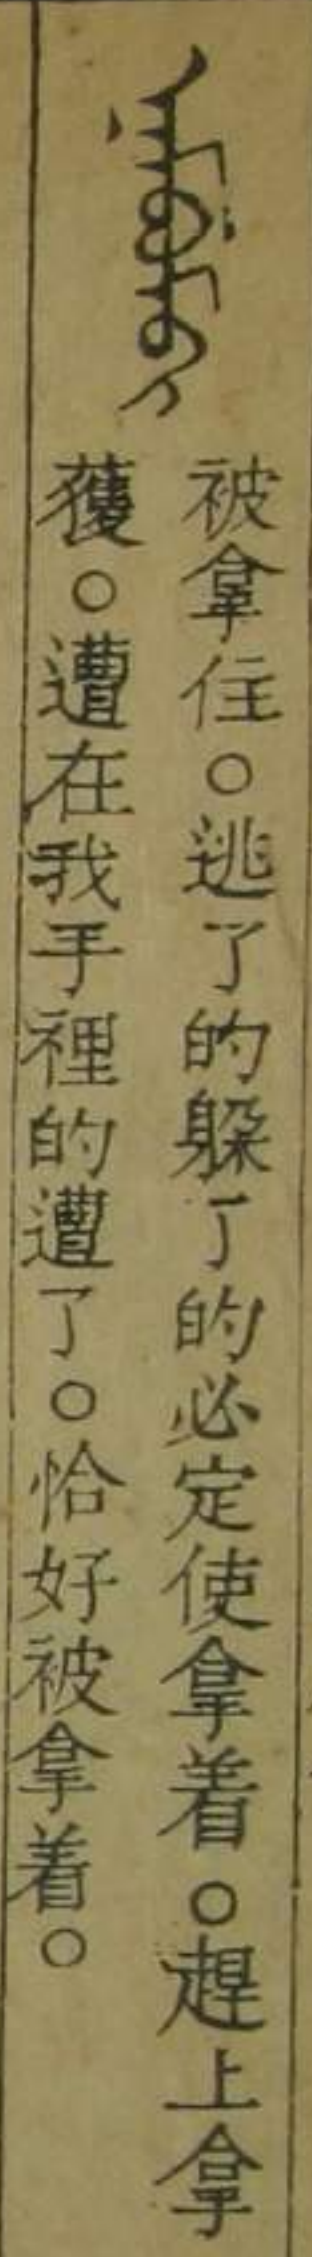 ᠨᠠᠮᠪᡠᠮᠪᡳ
被拿住。逃了的躱了的必定使拿着。趕上拿
獲。遭在我手裡的遭了。恰好被拿着。